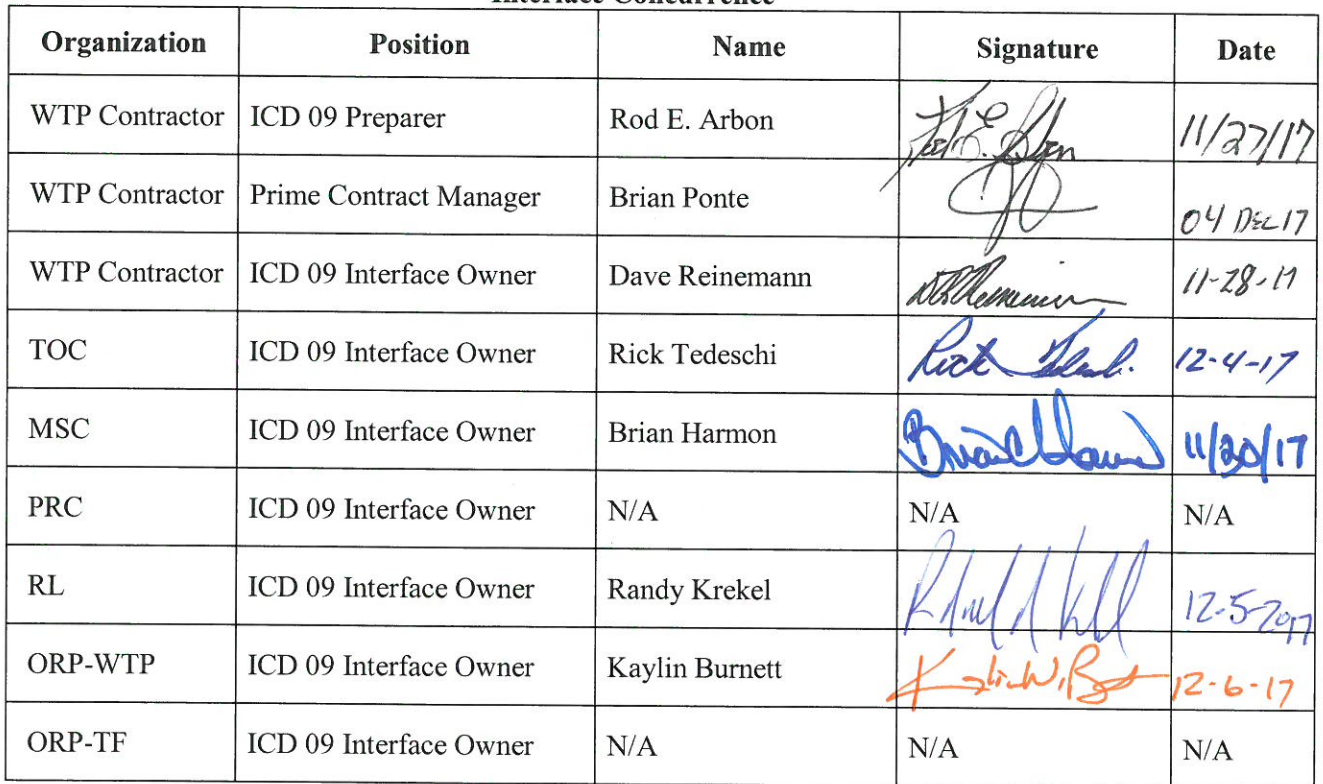 Interface Concurrence
Organization Position Name Signature Date
WTP Contractor ICD 09 Preparer Rod E. Arbon 11/27/17
WTP Contractor Prime Contract Manager Brian Ponte 04 DEC 17
WTP Contractor ICD 09 Interface Owner Dave Reinemann 11-28-17
TOC ICD 09 Interface Owner Rick Tedeschi Rick 12-4-17
MSC ICD 09 Interface Owner Brian Harmon Brian 11/20/17
PRC ICD 09 Interface Owner N/A N/A N/A
RL ICD 09 Interface Owner Randy Krekel 12-5-2017
ORP-WTP ICD 09 Interface Owner Kaylin Burnett 12-6-17
ORP-TF ICD 09 Interface Owner N/A N/A N/A